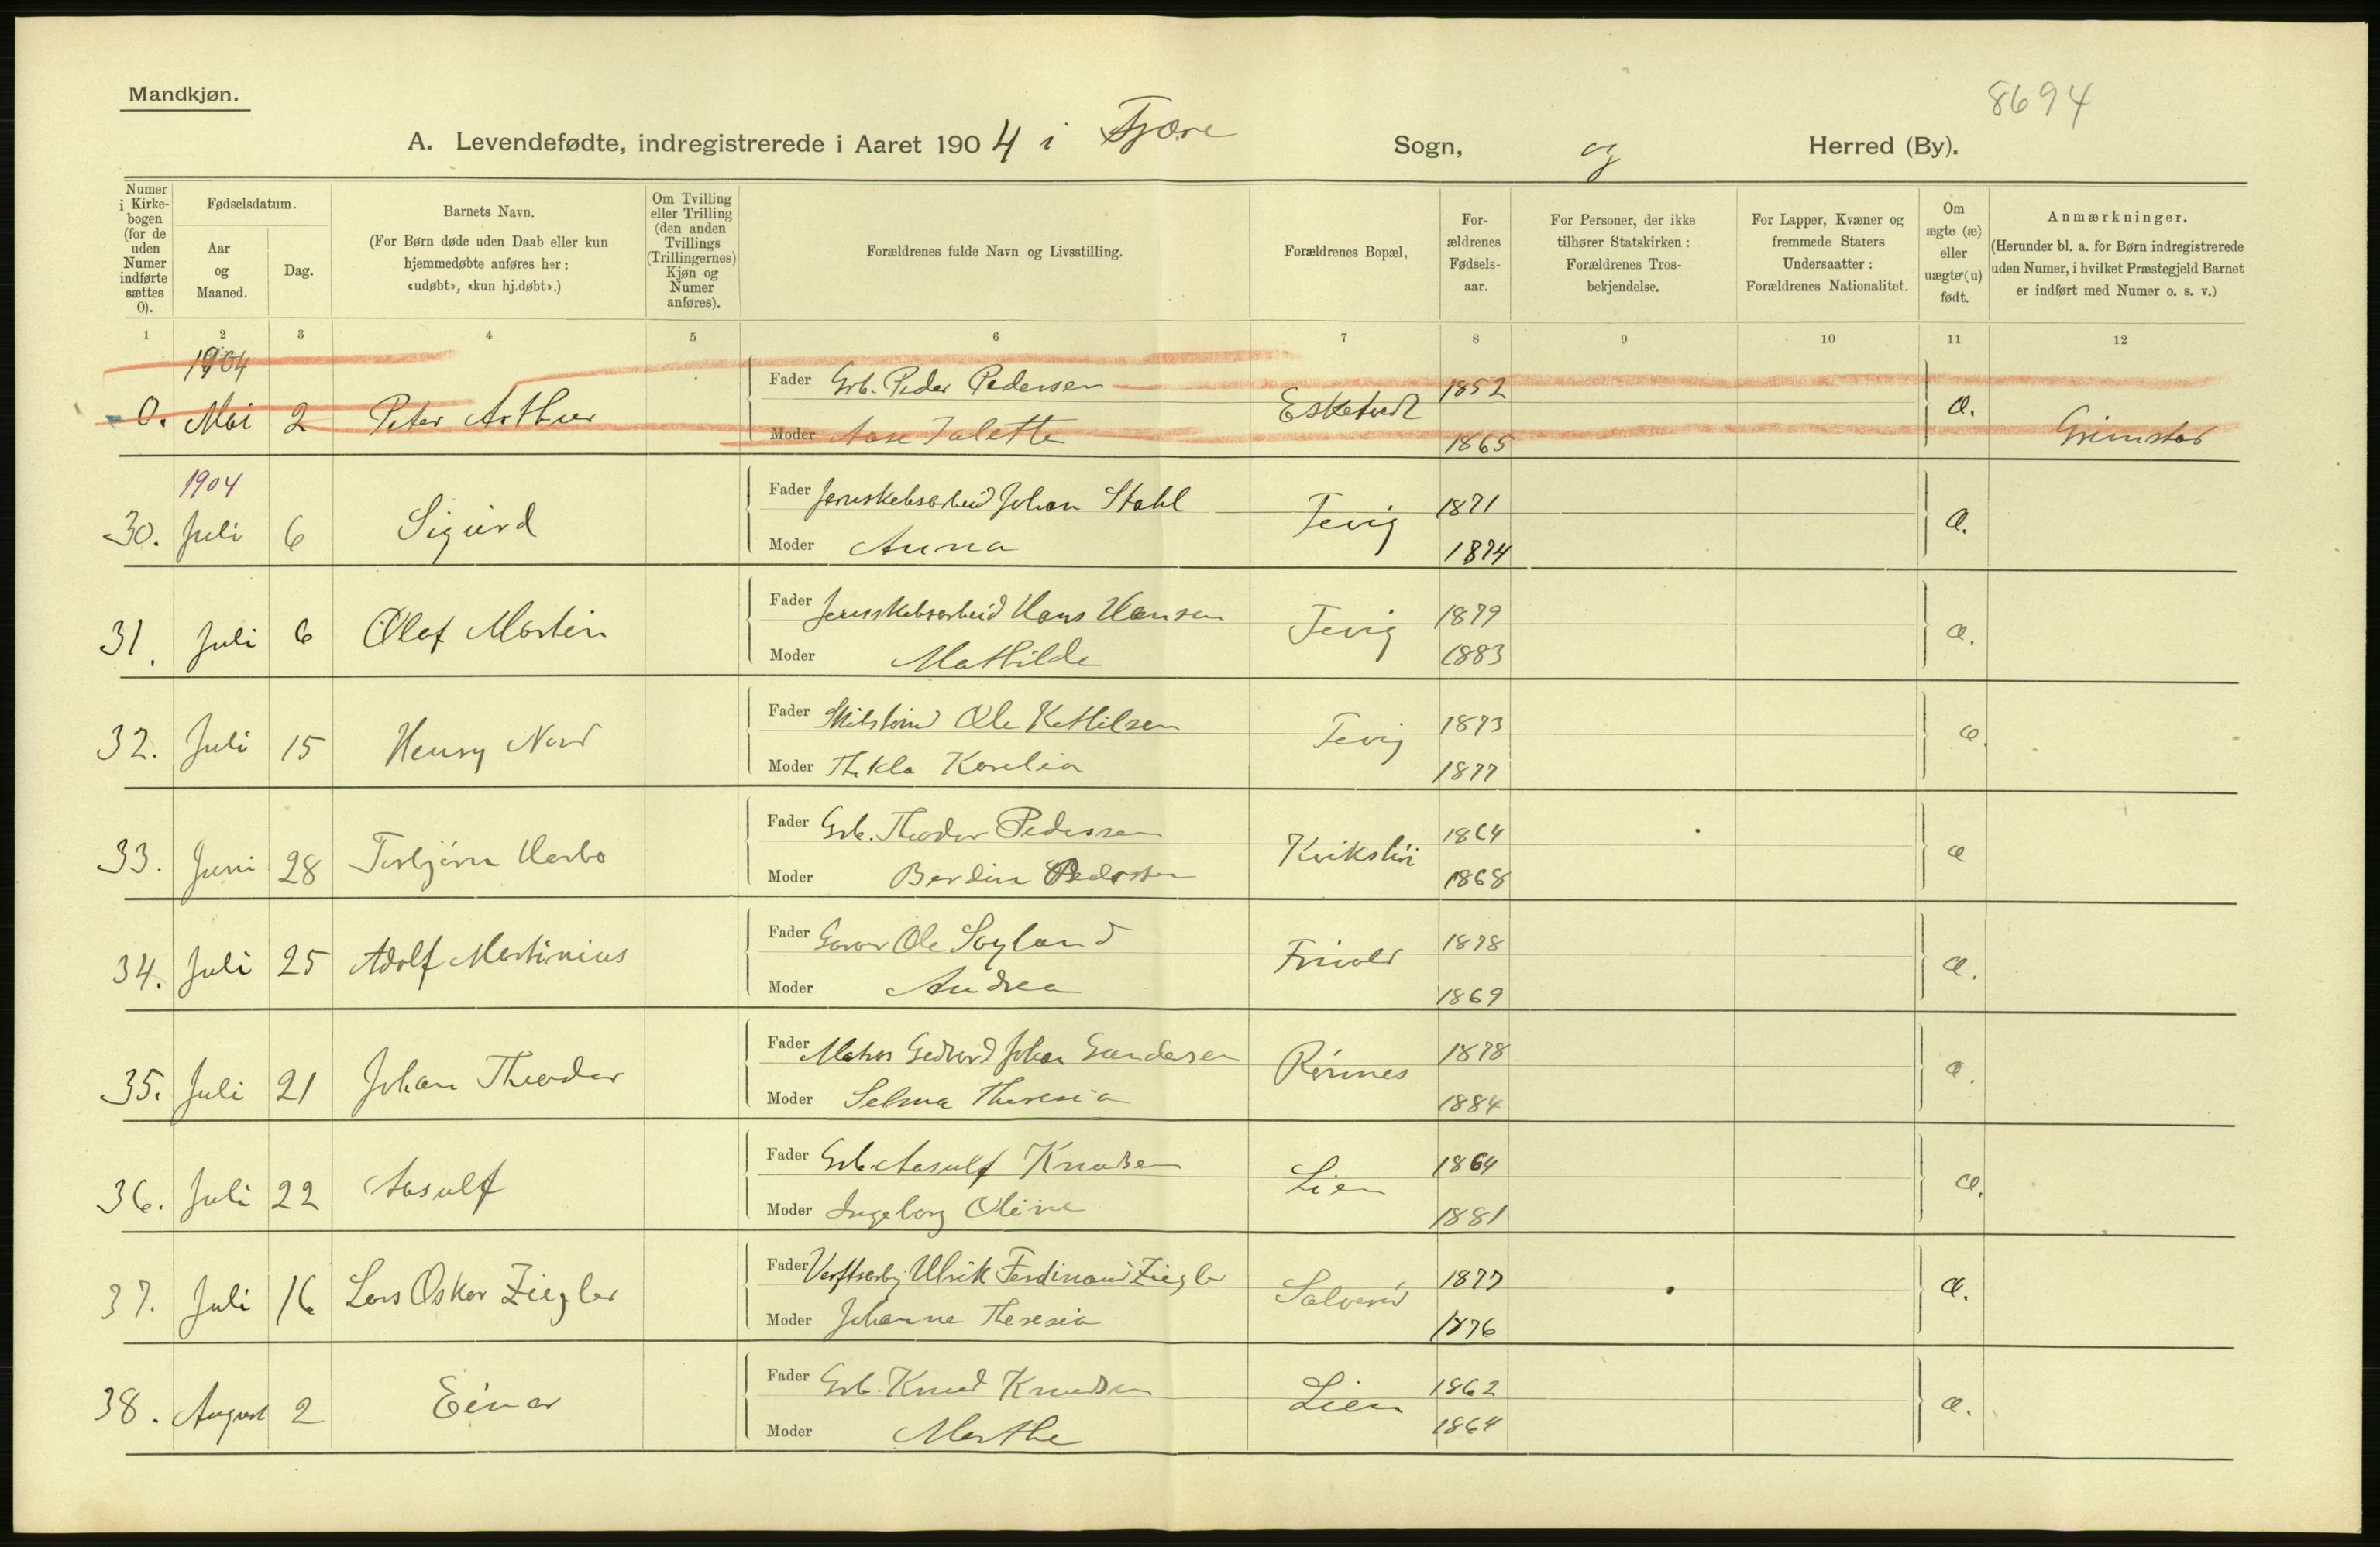 Mandkjøn.
8694
A. Levendefødte, indregistrerede i Aaret 1904 i Fjære Sogn, og Herred (By).
Numer i Kirkebogen (for de uden Numer indførte sættes 0).
Fødselsdatum.
Aar og Maaned.
Dag.
Barnets Navn.
(For Børn døde uden Daab eller kun hjemmedøbte anføres her: «udøbt», «kun hj.døbt».)
Om Tvilling eller Trilling (den anden Tvillings (Trillingernes) Kjøn og Numer anføres).
Forældrenes fulde Navn og Livsstilling.
Forældrenes Bopæl,
Forældrenes Fødselsaar.
For Personer, der ikke tilhører Statskirken: Forældrenes Trosbekjendelse.
For Lapper, Kvæner og fremmede Staters Undersaatter: Forældrenes Nationalitet.
Om ægte (æ) eller uægte (u) født.
Anmærkninger.
(Herunder bl. a. for Børn indregistrerede uden Numer, i hvilket Præstegjeld Barnet er indført med Numer o. s. v.)
1 2 3 4 5 6 7 8 9 10 11 12
1904
Fader Grb. Peder Pedersen 1852
0. Mai 2 Peter Arthur Esketvedt æ. Grimstad
Moder Aase Talette 1865
1904
Fader Jernskibsarbeid Johan Stahl 1871
30. Juli 6 Sigurd Fevig æ.
Moder Anna 1874
Fader Jernskibsarbeid Hans Hansen 1879
31. Juli 6 Olaf Martin Fevig æ.
Moder Mathilde 1883
Fader Ole Kettilsen 1873
32. Juli 15 Henry Nord Fevig æ.
Moder Thekla Karelia 1877
Fader Grb. Theodor Pedersen 1864
33. Juni 28 Torbjørn Harbo æ
Moder Berdine Pedersen 1868
Fader Garver Ole Søyland 1878
34. Juli 25 Adolf Martinius Frivold æ.
Moder Andrea 1869
Fader Matros Johan Gundersen 1878
35. Juli 21 Johan Theodor Rønnes æ.
Moder Selma Theresia 1884
Fader Grb. Aasulf Knudsen 1864
36. Juli 22 Aasulf Lien æ.
Moder Ingeborg Oline 1881
Fader Verftsarbj. Ulrik Ferdinand Ziegler 1877
37. Juli 16 Lars Oskar Ziegler æ.
Moder Johanne Theresia 1876
Fader Grb. Knud Knudsen 1862
38. August 2 Einar Lien æ.
Moder Marthe 1864